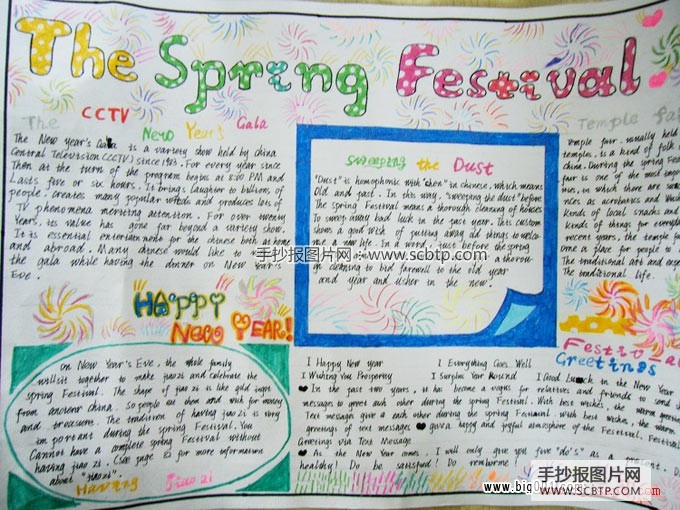 The Spring Festival!
The CCTV New Year's Gala
The New year's Gala is a variety show held by China
Central Television (CCTV) since 1983. For every year since
Then at the turn of the program begins at 8:00 PM and
Lasts five or six hours. It brings laughter to billions of
people, creates many popular words and produces lots of
TV phenomena meriting attention. For over twenty
Years, its value has gone far beyond a variety show.
It is essential entertainment for the chinese both at home
and abroad. Many chinese would like to
the gala while having the dinner on New Year's
Eve.
HAPPY
NEW YEAR!
On New Year's Eve, the whole family
will sit together to make jiaozi and celebrate the
spring Festival. The shape of jiao zi is like gold ingot
from ancient china. So people eat them and wish for money
and treasure. The tradition of having jiao zi is very
important during the spring Festival. You
Cannot have a complete spring Festival without
having jiao zi. (See page 12 for more information
about "jiaozi".
Having Jiaozi
Sweeping the Dust
"Dust" is homophonic with "chen" in chinese, which means
Old and past. In this way, "sweeping the dust" before
The spring Festival means a thorough cleaning of houses
To sweep away bad luck in the past year. This custom
shows a good wish of putting away old things to welcome
a new life. In a word, just before the spring
a thorough
cleaning to bid farewell to the old year
and year and usher in the new.
Temple fair
Temple fair, usually held
temples, is a kind of folk
china. During the spring Fes
fair is one of the most impor
in which there are
such as acrobatics and
kinds of local snacks and
kinds of things for everyda
recent years, the temple fair
one a place for people to
The traditional art and
The traditional life.
Festival
Greetings
I Happy New year I Everything Goes Well
I Wishing You Prosperity I Surplus Year Round I Good Luck in the New Year
In the past two years, it has become a vogue for relatives and friends to send
messages to greet each other during the spring Festival. With best wishes, the warm
Text message give a each other during the spring Festival. With best wishes, the warm
greetings of text messages a happy and joyful atmosphere of the Festival.
Greetings via Text Message
As the New Year comes, I will only give you five "do's" as a present. Do
healthy! Do be satisfied! Do remember
手抄报图片网:www.scbtp.com
手抄报图片网
WWW.SCBTP.COM